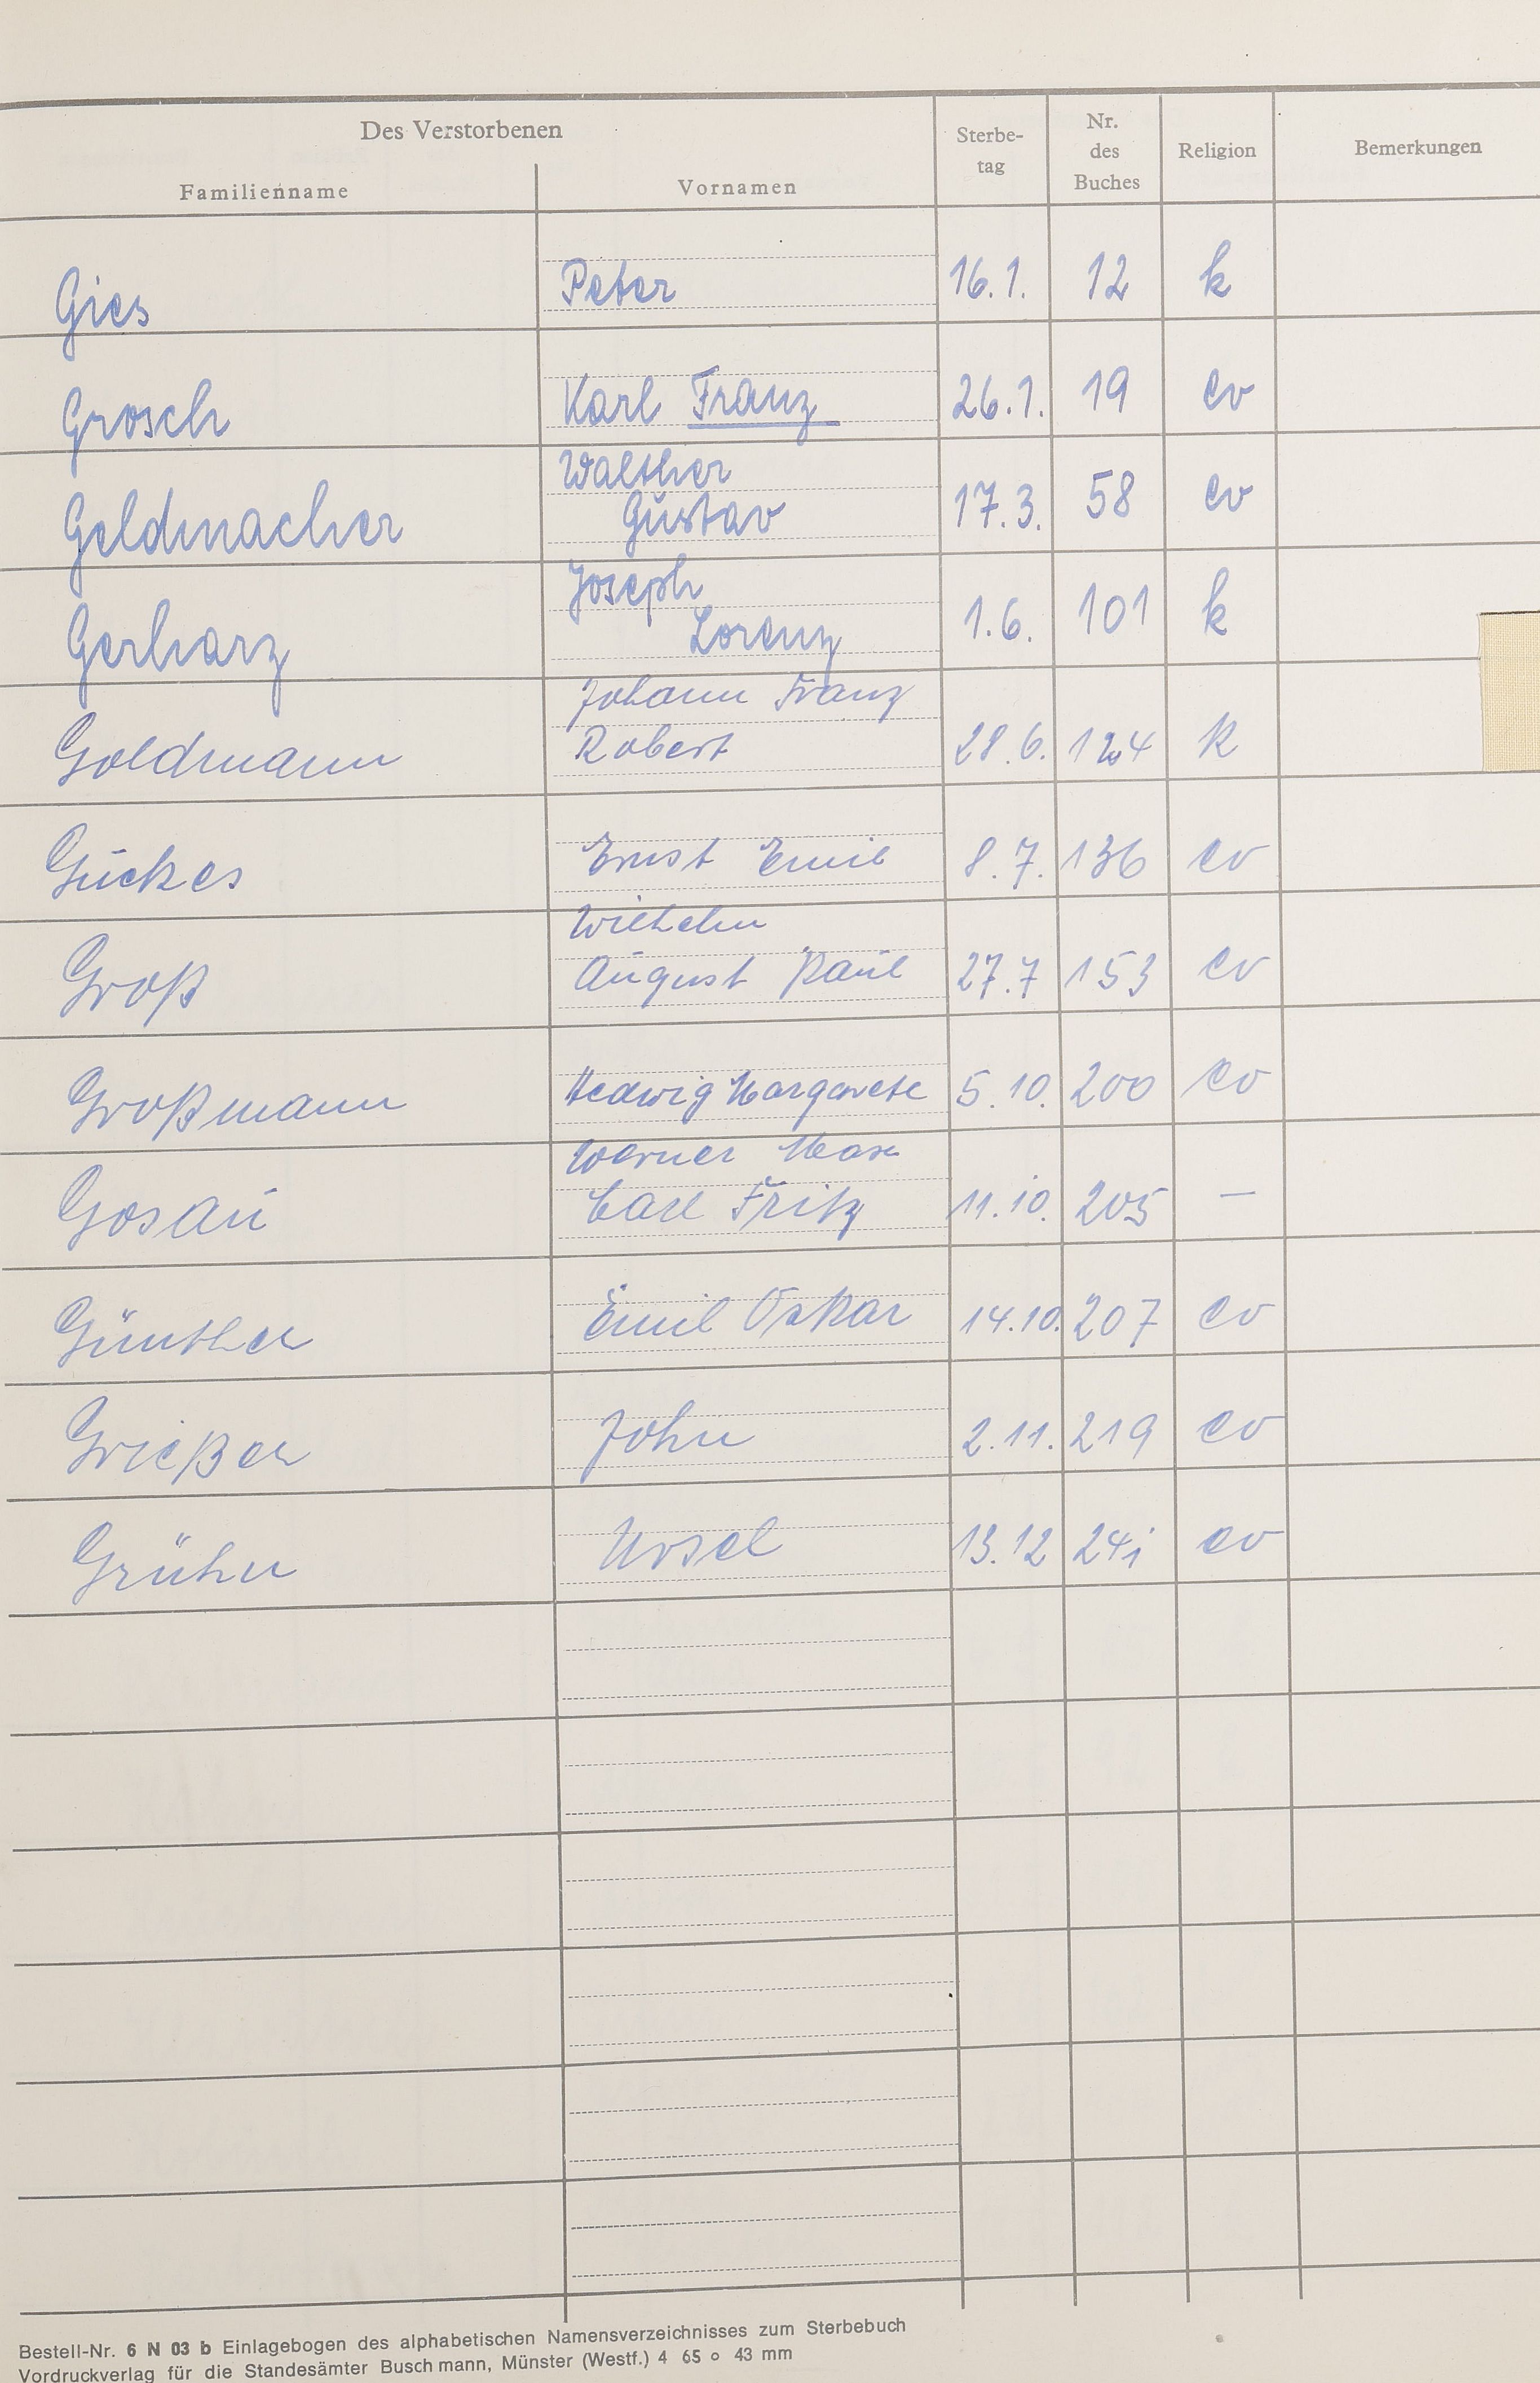 Des Verstorbenen
Familienname Vornamen Sterbe-tag Nr. des Buches Religion Bemerkungen
Gies Peter 16.1. 12 k
Grosch Karl Franz 26.1. 19 ev
Walther
Geldmacher Gustav 17.3. 58 ev
Joseph
Gerharz Lorenz 1.6. 101 k
Johann Franz
Goldmann Robert 28.6. 124 k
Gückes Ernst Emil 8.7. 136 ev
Wilhelm
Groß August Paul 27.7 153 ev
Großmann Hedwig Margarete 5.10. 200 ev
Werner Max
Gosau Carl Fritz 11.10. 205 —
Günther Emil Oskar 14.10. 207 ev
Grießer John 2.11. 219 ev
Grühn Ursel 13.12 241 ev
Bestell-Nr. 6 N 03 b Einlagebogen des alphabetischen Namensverzeichnisses zum Sterbebuch
Vordruckverlag für die Standesämter Buschmann, Münster (Westf.) 4 65 o 43 mm